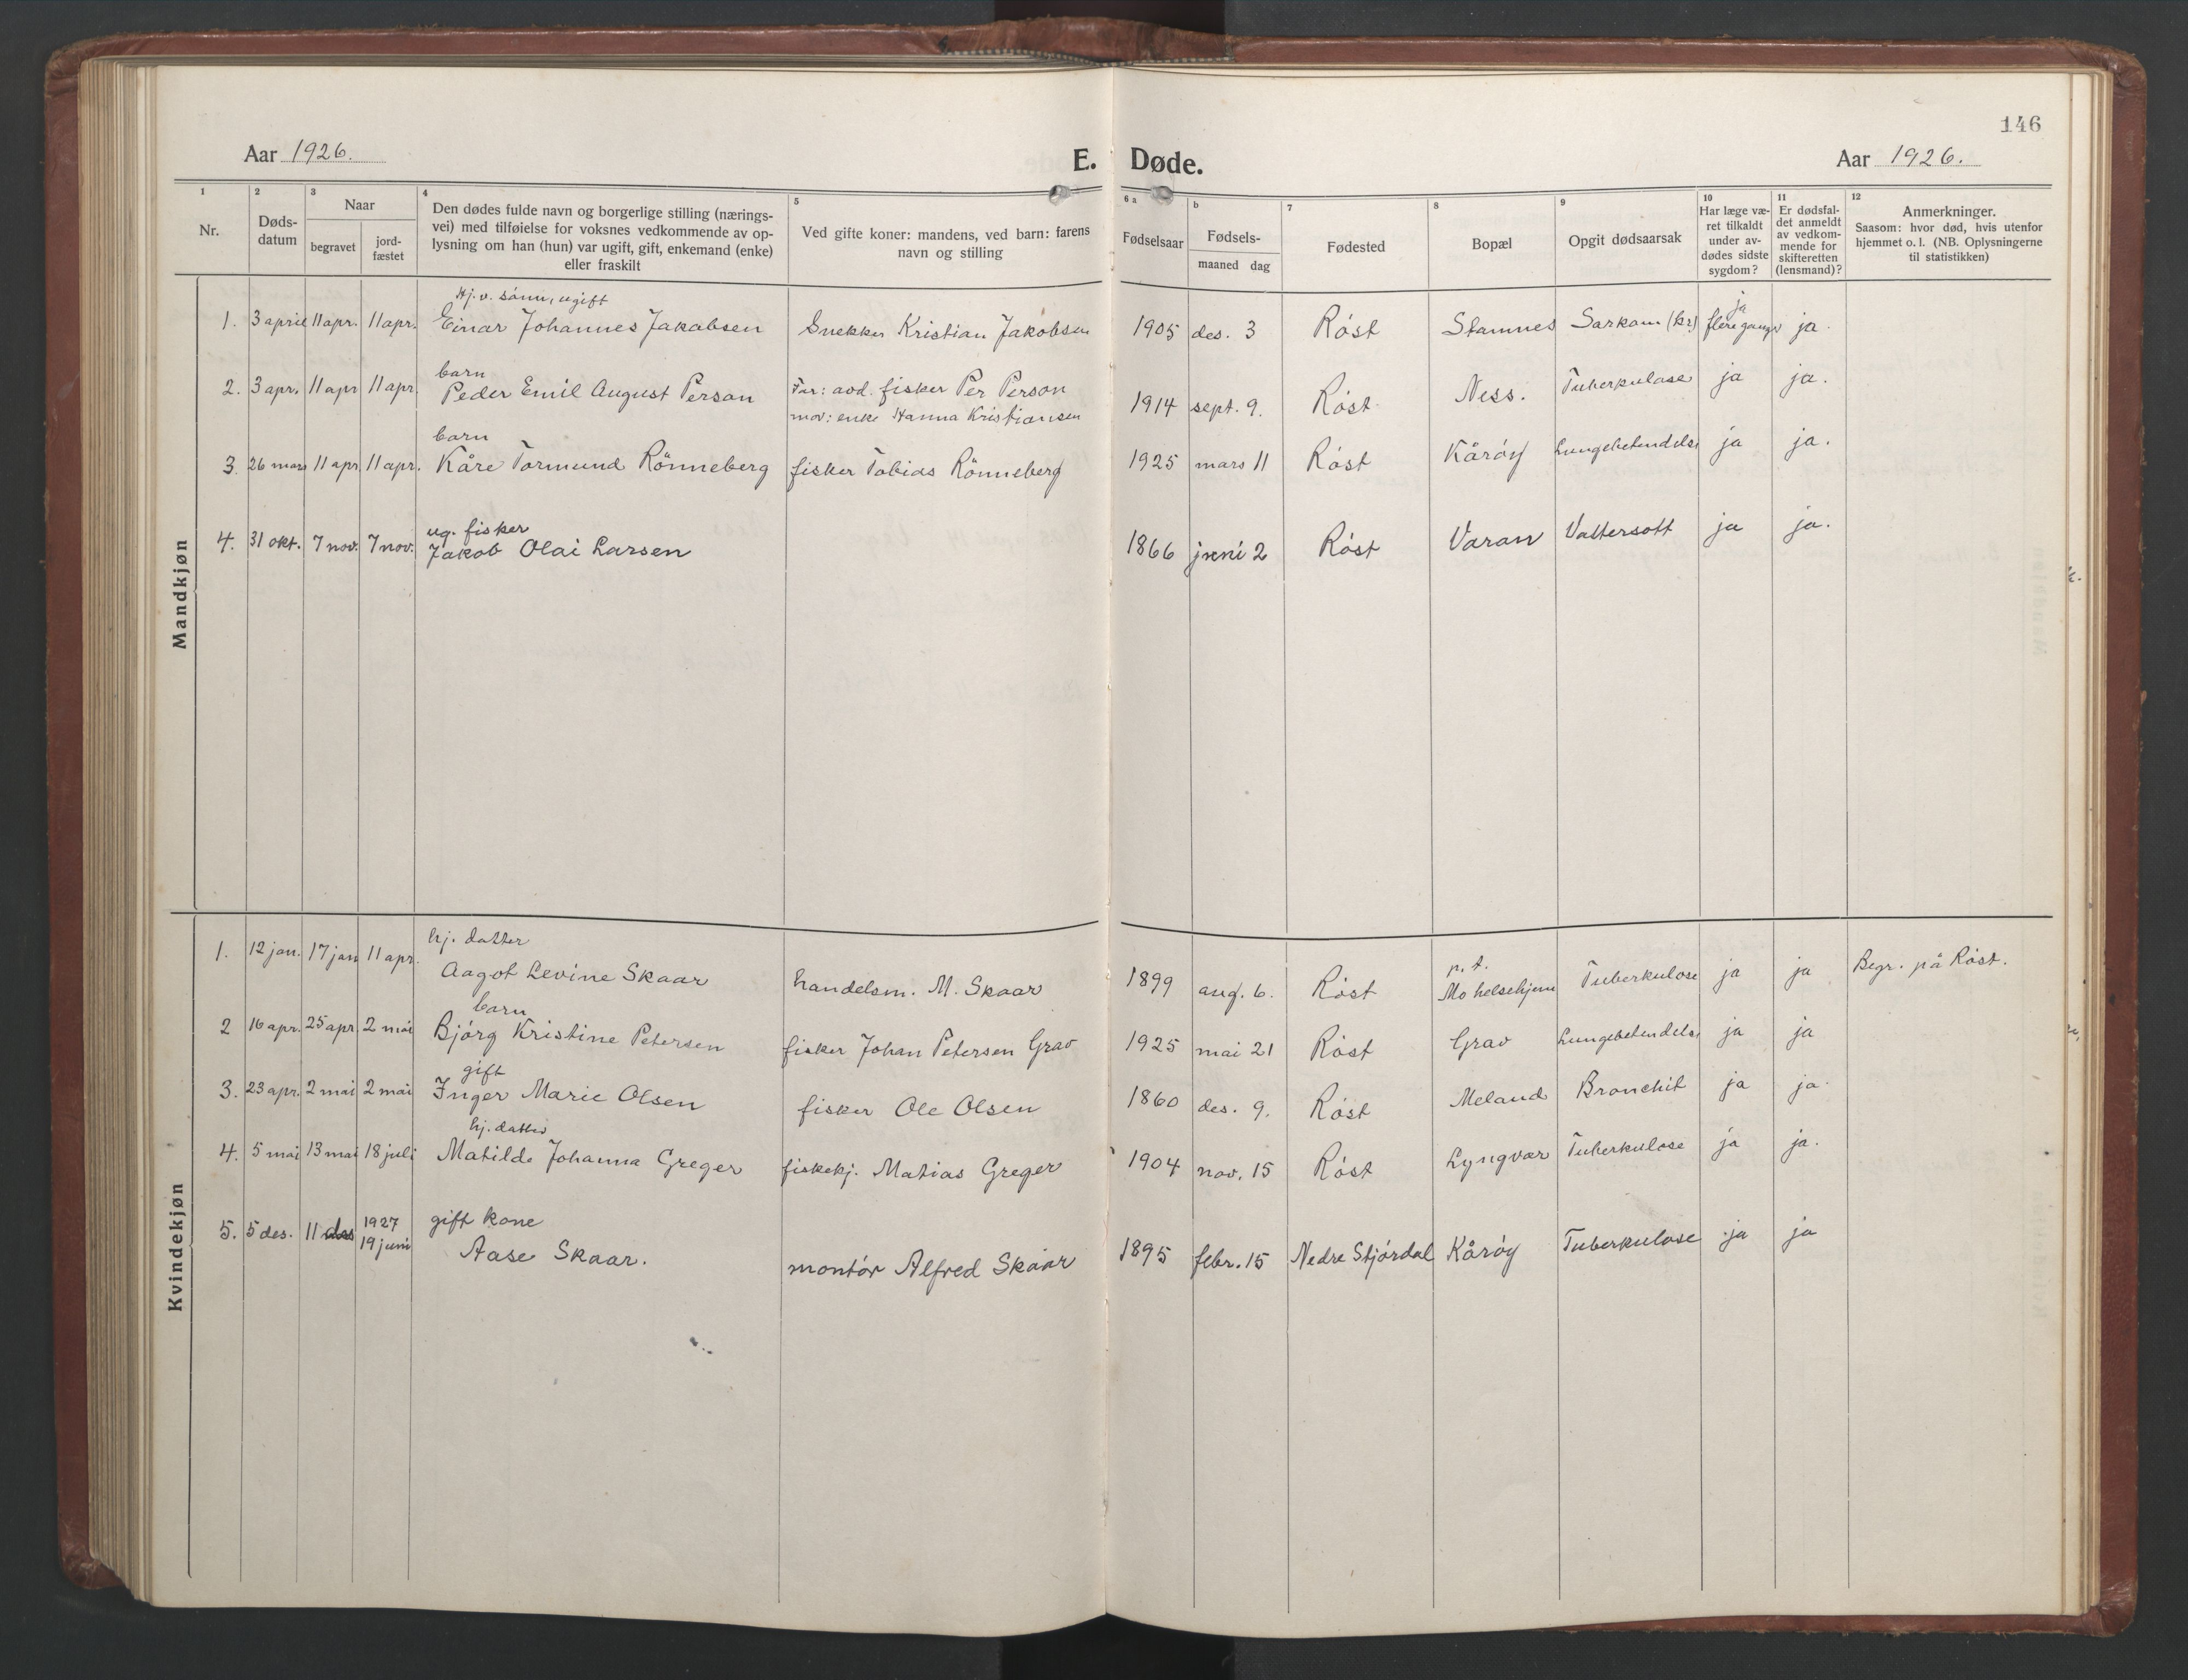 146
Aar 1926.
E. Døde.
Aar 1926.
1 2 3 4 5 6 a b 7 8 9 10 11 12
Nr.
Døds-
datum
Naar
begravet
jord-
fæstet
Den dødes fulde navn og borgerlige stilling (nærings-
vei) med tilføielse for voksnes vedkommende av op-
lysning om han (hun) var ugift, gift, enkemand (enke)
eller fraskilt
Ved gifte koner: mandens, ved barn: farens
navn og stilling
Fødselsaar
Fødsels-
maaned dag
Fødested
Bopæl
Opgit dødsaarsak
Har læge væ-
ret tilkaldt
under av-
dødes sidste
sygdom?
Er dødsfal-
det anmeldt
av vedkom-
mende for
skifteretten
(lensmand)?
Anmerkninger.
Saasom: hvor død, hvis utenfor
hjemmet o. l. (NB. Oplysningerne
til statistikken)
Mandkjøn
Hj. v. sønn, ugift
1. 3 april 11 apr. 11 apr. Einar Johannes Jakobsen Snekker Kristian Jakobsen 1905 des. 3 Röst Stamnes Sarkom (kr) ja flere ganger ja.
barn
2. 3 apr. 11 apr 11 apr. Peder Emil August Person Far: avd. fisker Per Person
mor: enke Hanna Kristiansen 1914 sept. 9. Röst Ness. Tuberkulose ja ja.
barn
3. 26 mars 11 apr 11 apr. Kåre Tormund Rönneberg fisker Tobias Rönneberg 1925 mars 11 Röst Kåröy Lungebetendelse ja ja.
ug. fisker
4. 31 okt. 7 nov. 7 nov. Jakob Olai Larsen 1866 juni 2 Röst Varan Vattersott ja ja.
Kvindekjøn
hj. datter
1. 12 jan. 17 jan 11 apr. Aagot Levine Skaar handelsm. M. Skaar 1899 aug. 6. Röst p.t. Mo helsehjem Tuberkulose ja ja Begr. på Röst.
barn
2 16 apr. 25 apr 2 mai Björg Kristine Petersen fisker Johan Petersen Grav 1925 mai 21 Röst Grav Lungebetendelse ja ja
gift
3. 23 apr. 2 mai 2 mai Inger Marie Olsen fisker Ole Olsen 1860 des. 9. Röst Meland Bronchit ja ja
hj. datter
4. 5 mai 13 mai 18 juli Matilde Johanna Greger fiskekj. Matias Greger 1904 nov. 15 Röst Lyngvær Tuberkulose ja ja.
gift kone
5. 5 des. 11 des 1927 19 juni Aase Skaar. montör Alfred Skaar 1895 febr. 15 Nedre Stjördal Kåröy Tuberkulose ja ja